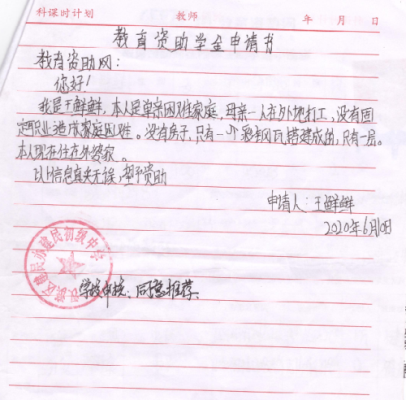 科课时计划 教师 年 月 日
教育资助学金申请书
教育资助网：
您好！
我是王鲜鲜，本人是单亲困难家庭，母亲一人在外地打工，没有固
定职业造成家庭困难。没有房子，只有一个彩钢瓦搭建成的，只有一层。
本人现在住在外婆家。
以上信息真实无误，望予资助
申请人：王鲜鲜
2020年6月10日
建民初级中学
学校审核：同意推荐.